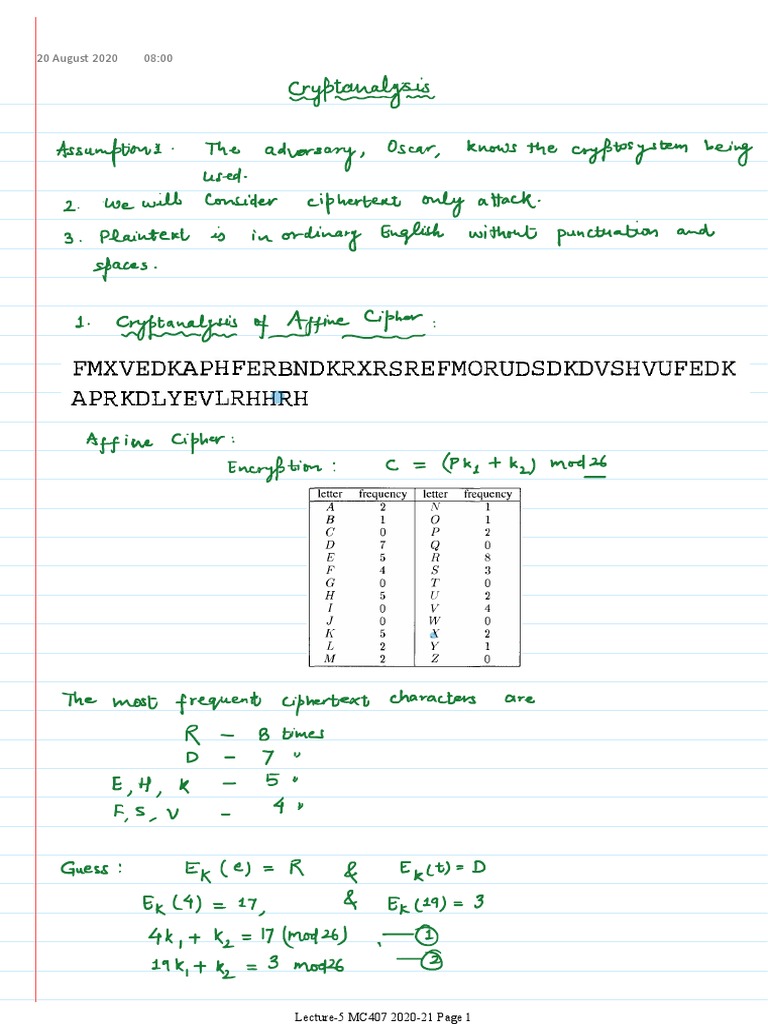 20 August 2020 08:00
Cryptanalysis
Assumption 1. The adversary, Oscar, knows the cryptosystem being
used.
2. We will consider ciphertext only attack.
3. Plaintext is in ordinary English without punctuation and
spaces.
1. Cryptanalysis of Affine Cipher :
FMXVEDKAPHFERBNDKRXRSREFMORUDSDKDVSHVUFEDK
APRKDLYEVLRHHRH
Affine Cipher :
Encryption : C = (Pk₁ + k₂) mod 26
letter frequency letter frequency
A 2 N 1
B 1 O 1
C 0 P 2
D 7 Q 0
E 5 R 8
F 4 S 3
G 0 T 0
H 5 U 2
I 0 V 4
J 0 W 0
K 5 X 2
L 2 Y 1
M 2 Z 0
The most frequent ciphertext characters are
R — 8 times
D — 7 "
E, H, K — 5 "
F, S, V — 4 "
Guess : E_K (e) = R & E_K (t) = D
E_K (4) = 17, & E_K (19) = 3
4k₁ + k₂ = 17 (mod 26) , — ①
19k₁ + k₂ = 3 mod 26 — ②
Lecture-5 MC407 2020-21 Page 1